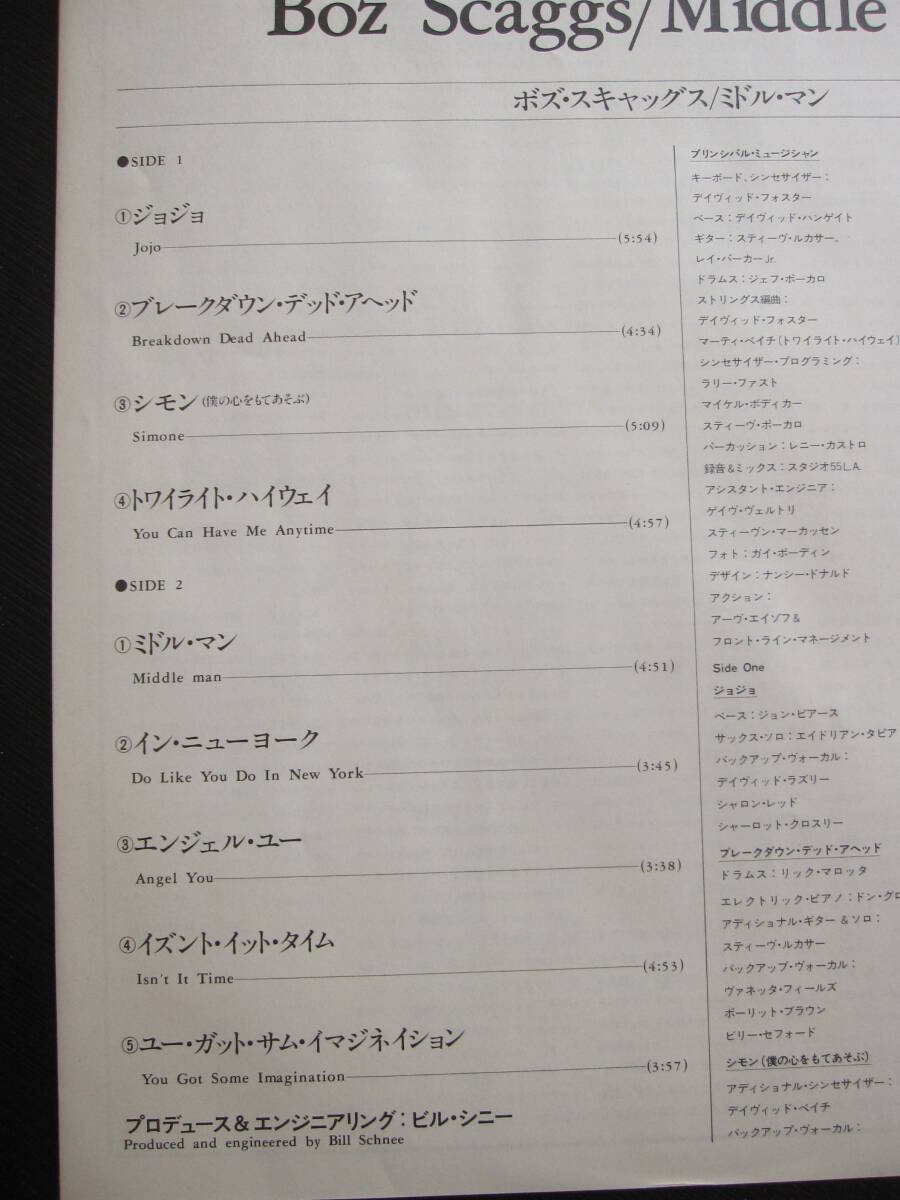 Boz Scaggs/Middle
ボズ・スキャッグス/ミドル・マン
●SIDE 1
①ジョジョ
Jojo (5:54)
②ブレークダウン・デッド・アヘッド
Breakdown Dead Ahead (4:34)
③シモン(僕の心をもてあそぶ)
Simone (5:09)
④トワイライト・ハイウェイ
You Can Have Me Anytime (4:57)
●SIDE 2
①ミドル・マン
Middle man (4:51)
②イン・ニューヨーク
Do Like You Do In New York (3:45)
③エンジェル・ユー
Angel You (3:38)
④イズント・イット・タイム
Isn't It Time (4:53)
⑤ユー・ガット・サム・イマジネイション
You Got Some Imagination (3:57)
プロデュース&エンジニアリング:ビル・シニー
Produced and engineered by Bill Schnee
プリンシパル・ミュージシャン
キーボード、シンセサイザー:
デイヴィッド・フォスター
ベース:デイヴィッド・ハンゲイト
ギター:スティーヴ・ルカサー、
レイ・パーカーJr.
ドラムス:ジェフ・ポーカロ
ストリングス編曲:
デイヴィッド・フォスター
マーティ・ペイチ(トワイライト・ハイウェイ)
シンセサイザー・プログラミング:
ラリー・ファスト
マイケル・ボディカー
スティーヴ・ポーカロ
パーカッション:レニー・カストロ
録音&ミックス:スタジオ55L.A.
アシスタント・エンジニア:
ゲイヴ・ヴェルトリ
スティーヴン・マーカッセン
フォト:ガイ・ボーディン
デザイン:ナンシー・ドナルド
アクション:
アーヴ・エイゾフ&
フロント・ライン・マネージメント
Side One
ジョジョ
ベース:ジョン・ピアース
サックス・ソロ:エイドリアン・タピア
バックアップ・ヴォーカル:
デイヴィッド・ラズリー
シャロン・レッド
シャーロット・クロスリー
ブレークダウン・デッド・アヘッド
ドラムス:リック・マロッタ
エレクトリック・ピアノ:ドン・グロ
アディショナル・ギター&ソロ:
スティーヴ・ルカサー
バックアップ・ヴォーカル:
ヴァネッタ・フィールズ
ポーリット・ブラウン
ビリー・セフォード
シモン(僕の心をもてあそぶ)
アディショナル・シンセサイザー:
デイヴィッド・ペイチ
バックアップ・ヴォーカル: